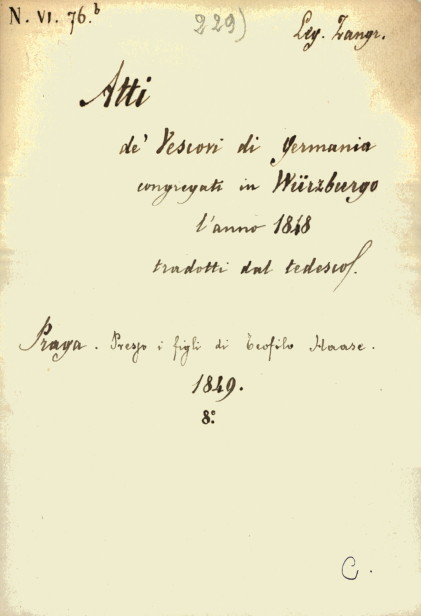 N. VI. 76.b
229)
Leg. Zangr.
Atti
de' Vescovi di Germania
congregati in Würzburgo
l'anno 1848
tradotti dal tedesco.
Praga. Presso i figli di Teofilo Haase.
1849.
8.°
C.